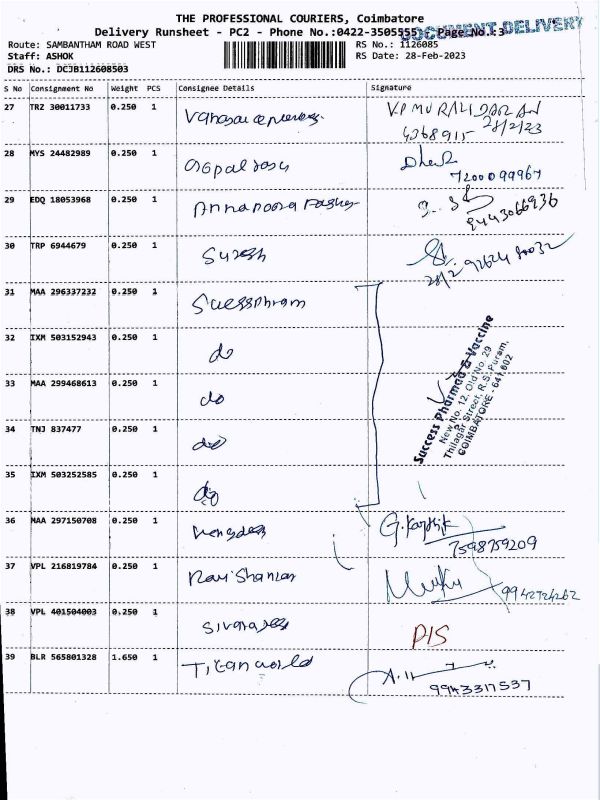 THE PROFESSIONAL COURIERS, Coimbatore
Delivery Runsheet - PC2 - Phone No.:0422-3505555 Page No.:3
DOCUMENT DELIVERY
Route: SAMBANTHAM ROAD WEST
RS No.: 1126085
Staff: ASHOK
RS Date: 28-Feb-2023
DRS No.: DCJB112608503
S No Consignment No Weight PCS Consignee Details Signature
27 TRZ 30011733 0.250 1
28/2/23
28 MYS 24482989 0.250 1 Gopal
7200099967
29 EDQ 18053968 0.250 1 Annapoorna
9443066936
30 TRP 6944679 0.250 1 Suresh
31 MAA 296337232 0.250 1
32 IXM 503152943 0.250 1 do
33 MAA 299468613 0.250 1 do
34 TNJ 837477 0.250 1 do
35 IXM 503252585 0.250 1 do
Success Pharmaa & Vaccine
New No. 12, Old No. 29
Thilagar Street, R.S. Puram,
COIMBATORE - 641 602
36 MAA 297150708 0.250 1 G. Karthik
7598759209
37 VPL 216819784 0.250 1 Ravi Shankar
38 VPL 401504003 0.250 1
39 BLR 565801328 1.650 1 Titan world
9943317537